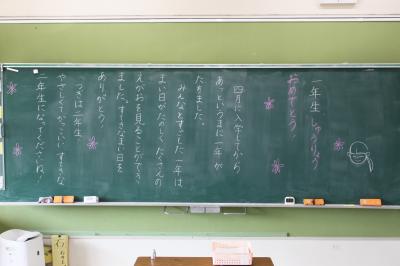 一年生 しゅうりょう
おめでとう!
四月に入学してから
あっというまに一年が
たちました。
みんなとすごした一年は
まい日がたのしく、たくさんの
えがおを見ることができ
ました。すてきなまい日を
ありがとう!
つぎは二年生
やさしくてかっこいい すてきな
二年生になってくださいね!